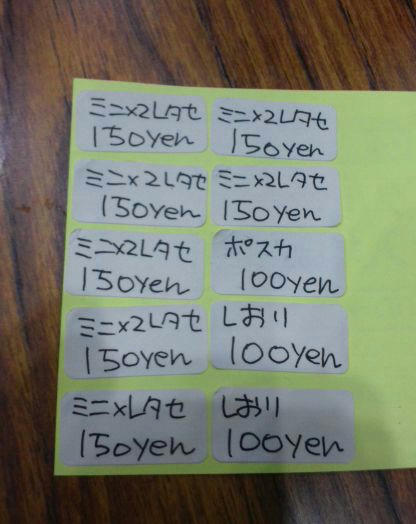 ミニx2レタセ
150yen
ミニx2レタセ
150yen
ミニx2レタセ
150yen
ミニx2レタセ
150yen
ミニx2レタセ
150yen
ポスカ
100yen
ミニx2レタセ
150yen
しおり
100yen
ミニxレタセ
150yen
しおり
100yen